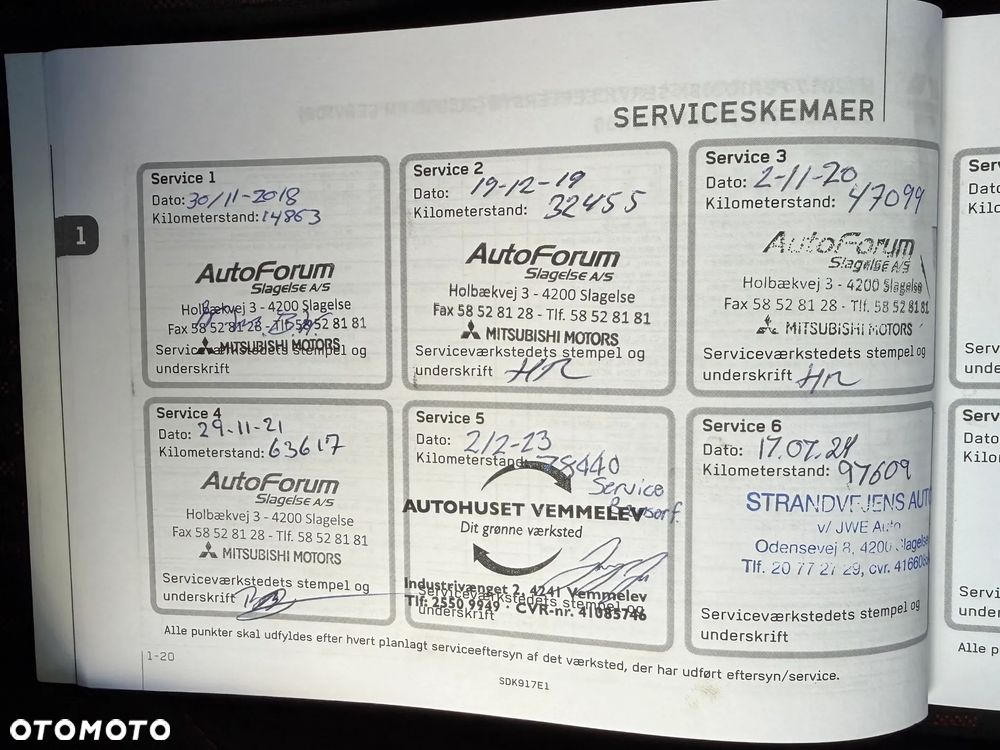 SERVICESKEMAER
1
Service 1
Dato: 30/11-2018
Kilometerstand: 14863
AutoForum
Slagelse A/S
Holbækvej 3 - 4200 Slagelse
Fax 58 52 81 28 - Tlf. 58 52 81 81
MITSUBISHI MOTORS
Serviceværkstedets stempel og
underskrift
Service 2
Dato: 19-12-19
Kilometerstand: 32455
AutoForum
Slagelse A/S
Holbækvej 3 - 4200 Slagelse
Fax 58 52 81 28 - Tlf. 58 52 81 81
MITSUBISHI MOTORS
Serviceværkstedets stempel og
underskrift HR
Service 3
Dato: 2-11-20
Kilometerstand: 47099
AutoForum
Slagelse A/S
Holbækvej 3 - 4200 Slagelse
Fax 58 52 81 28 - Tlf. 58 52 81 81
MITSUBISHI MOTORS
Serviceværkstedets stempel og
underskrift HR
Service 4
Dato: 29-11-21
Kilometerstand: 63617
AutoForum
Slagelse A/S
Holbækvej 3 - 4200 Slagelse
Fax 58 52 81 28 - Tlf. 58 52 81 81
MITSUBISHI MOTORS
Serviceværkstedets stempel og
underskrift
Service 5
Dato: 2/2-23
Kilometerstand: 78440
Service
AUTOHUSET VEMMELEV
Dit grønne værksted
Industrivænget 2, 4241 Vemmelev
Tlf: 2550 9949 · CVR-nr. 41085746
Serviceværkstedets stempel og
underskrift
Service 6
Dato: 17.07.24
Kilometerstand: 97609
STRANDVEJENS AUT
v/ JWE Auto
Odensevej 8, 4200 Slagelse
Tlf. 20 77 27 29, cvr. 416608
Serviceværkstedets stempel og
underskrift
Alle punkter skal udfyldes efter hvert planlagt serviceeftersyn af det værksted, der har udført eftersyn/service.
1-20
SDK917E1
Serv
Dato
Kilo
Serv
unde
Serv
Dato
Kilo
Servi
under
Alle p
OTOMOTO